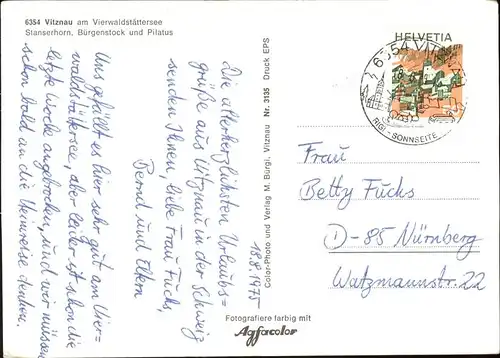 6354 Vitznau am Vierwaldstättersee
Stanserhorn, Bürgenstock und Pilatus
HELVETIA
6354 VITZNAU
RIGI-SONNSEITE
18.8.1975
Die allerherzlichsten Urlaubs=
grüße aus Vitznau in der Schweiz
senden Ihnen, liebe Frau Fuchs,
Bernd und Eltern
Uns gefällt es hier sehr gut am Vier=
waldstättersee, aber leider ist schon die
letzte Woche angebrochen, und wir müssen
schon bald an die Heimreise denken.
Color-Photo und Verlag M. Bürgi, Vitznau Nr. 3135 Druck EPS
Frau
Betty Fuchs
D-85 Nürnberg
Watzmannstr. 22
Fotografiere farbig mit
Agfacolor